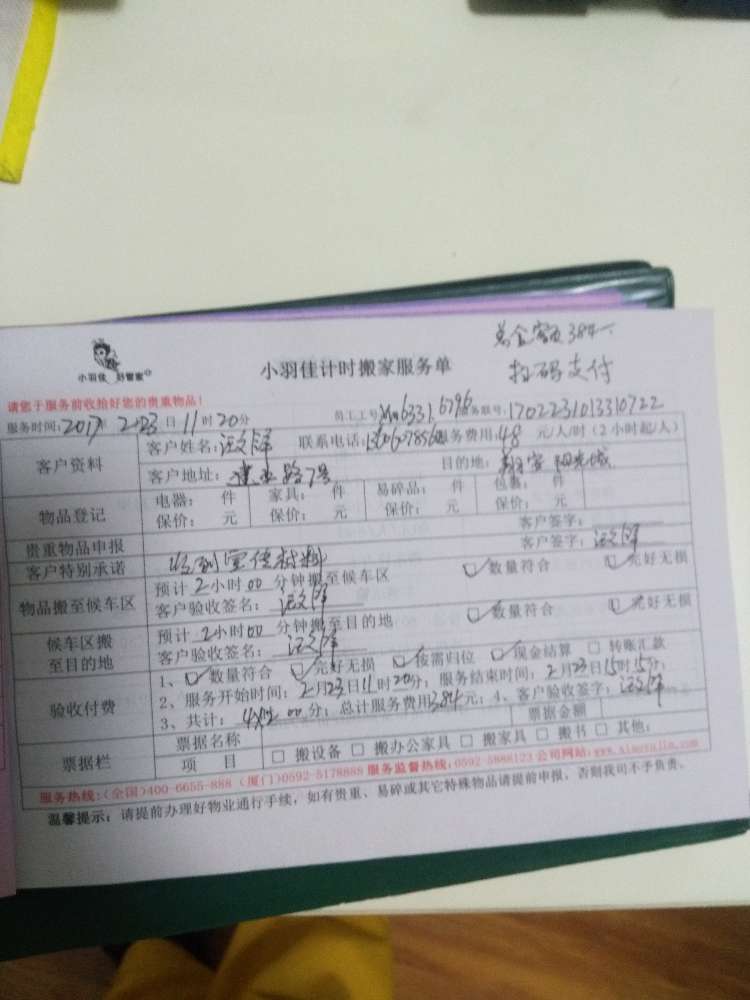 总金额384
扫码支付
小羽佳 好管家
小羽佳计时搬家服务单
请您于服务前收拾好您的贵重物品！
服务时间：2017年2月23日11时20分 员工工号 6331.6796 服务联号：1702231013310722
客户资料 客户姓名： 联系电话： 服务费用：48元/人/时（2小时起/人）
客户地址：建业路7号 目的地：翔安阳光城
物品登记 电器： 件 家具： 件 易碎品： 件 包裹： 件
保价： 元 保价： 元 保价： 元 保价： 元
贵重物品申报 客户签字：
客户特别承诺 收到宣传材料 客户签字：
物品搬至候车区 预计2小时00分钟搬至候车区 数量符合 完好无损
客户验收签名：
候车区搬至目的地 预计2小时00分钟搬至目的地 数量符合 完好无损
客户验收签名：
验收付费 1、数量符合 完好无损 按需归位 现金结算 转账汇款
2、服务开始时间：2月23日11时20分；服务结束时间：2月23日15时15分；
3、共计：4时00分；总计服务费用384元；4、客户验收签字：
票据栏 票据名称 票据金额
项 目 搬设备 搬办公家具 搬家具 搬书 其他：
服务热线：（全国）400-6655-888（厦门）0592-5178888 服务监督热线：0592-5888123 公司网站：www.xiaoyujia.com
温馨提示：请提前办理好物业通行手续，如有贵重、易碎或其它特殊物品请提前申报，否则我司不予负责。